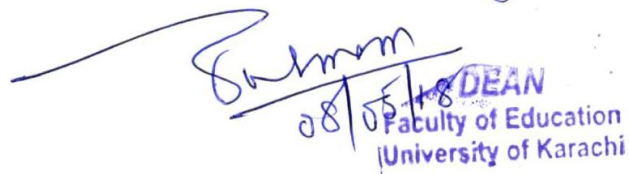 08/05/18
DEAN
Faculty of Education
University of Karachi